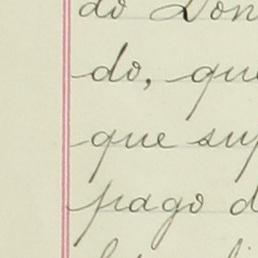 do Don
do, que
que sup
pago d